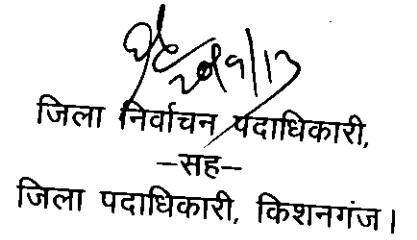 जिला निर्वाचन पदाधिकारी,
–सह–
जिला पदाधिकारी, किशनगंज।